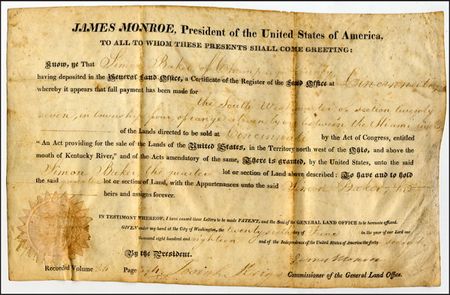 JAMES MONROE, President of the United States of America,
TO ALL TO WHOM THESE PRESENTS SHALL COME GREETING:
Know, ye That Simon Baker of
having deposited in the General Land Office, a Certificate of the Register of the Land Office at Cincinnati
whereby it appears that full payment has been made for
the South West quarter of section twenty
seven, in township four, of range between the Miami
of the Lands directed to be sold at Cincinnati by the Act of Congress, entitled
"An Act providing for the sale of the Lands of the United States, in the Territory north west of the Ohio, and above the
mouth of Kentucky River," and of the Acts amendatory of the same, There is granted, by the United States, unto the said
Simon Baker the quarter lot or section of Land above described: To have and to hold
the said quarter lot or section of Land, with the Appurtenances unto the said Simon Baker his
heirs and assigns forever.
IN TESTIMONY WHEREOF, I have caused these Letters to be made PATENT, and the Seal of the GENERAL LAND OFFICE to be hereunto affixed.
GIVEN under my hand at the City of Washington, the twenty day of June in the year of our Lord
one thousand eight hundred and eighteen and of the Independence of the United States of America the forty second
By the President. James Monroe
Recorded Volume Page Josiah Meigs Commissioner of the General Land Office.